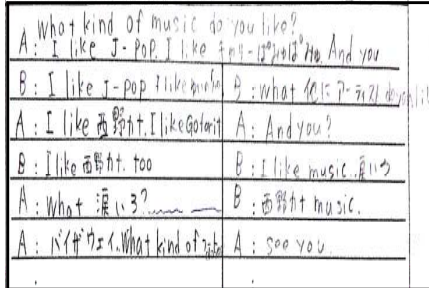 What kind of music do you like?
A: I like J-POP. I like きゃりーぱみゅぱみゅ. And you
B: I like J-pop I like
A: I like 西野カナ. I like
B: I like 西野カナ. too
A: What 涙いろ?
A: バイザウェイ. What kind of
B: what 他に アーティスト do you like
A: And you?
B: I like music. 涙いろ
B: 西野カナ music.
A: see you